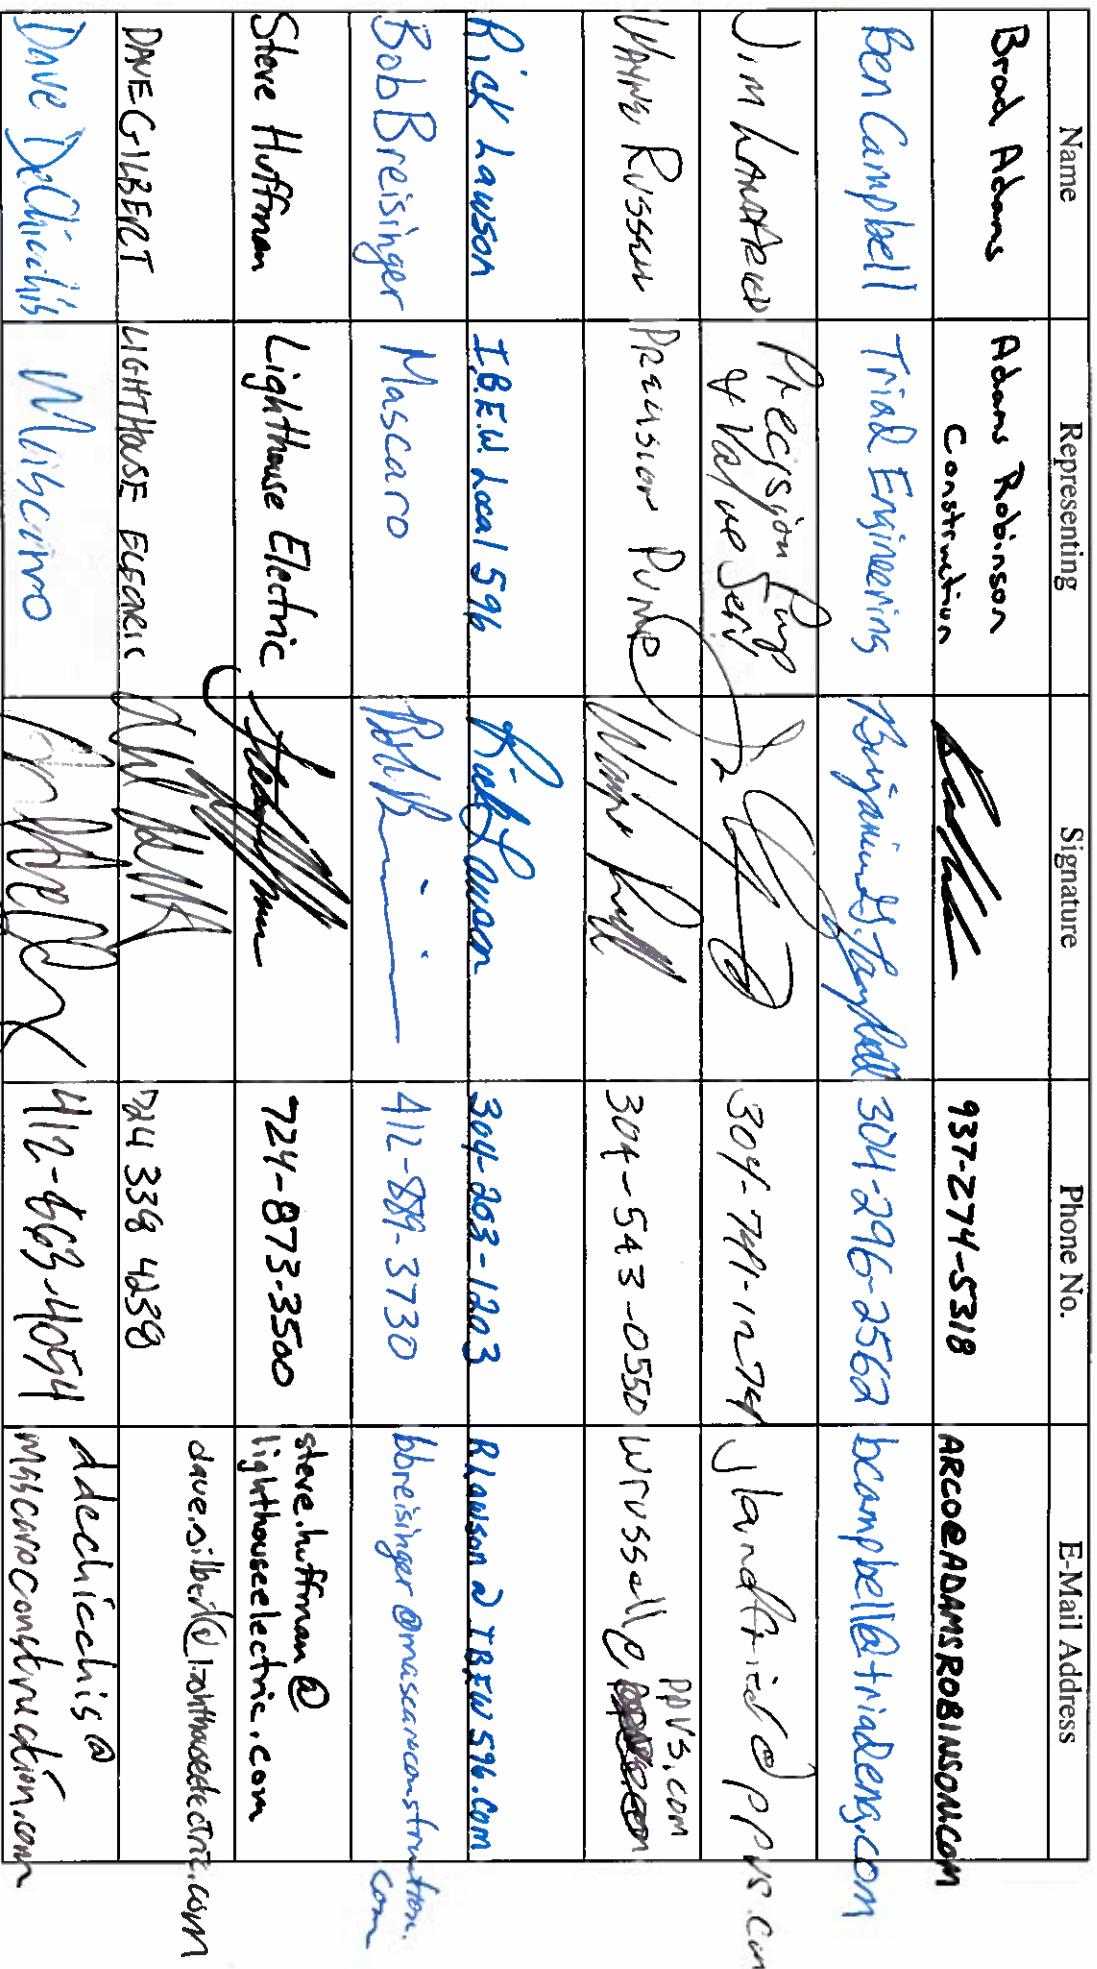 Name Representing Signature Phone No. E-Mail Address
Brad Adams Adams Robinson Construction 937-274-5318 ARCO@ADAMSROBINSON.COM
Ben Campbell Triad Engineering Benjamin G. Campbell 304-296-2562 bcampbell@triadeng.com
Jim Precision Pump & Valve Serv 304-741-1274 jlandfried@ppvs.com
Wayne Russell Precision Pump 304-543-0550 wrussell@ppvs.com
Rick Lawson I.B.E.W. Local 596 Rick Lawson 304-203-1203 Rlawson@IBEW596.com
Bob Breisinger Mascaro 412-889-3730 bbreisinger@mascaroconstruction.com
Steve Huffman Lighthouse Electric 724-873-3500 steve.huffman@
lighthouseelectric.com
DAVE GILBERT LIGHTHOUSE ELECTRIC 724 338 4238 dave.gilbert@lighthouseelectric.com
Dave DeChicchis Mascaro 412-563-4054 ddechicchis@
mascaroconstruction.com